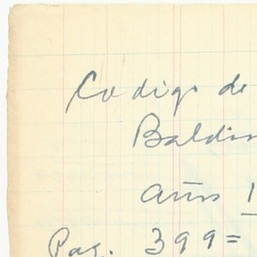 Codigo de
Baldin
Año 1
Pag. 399=